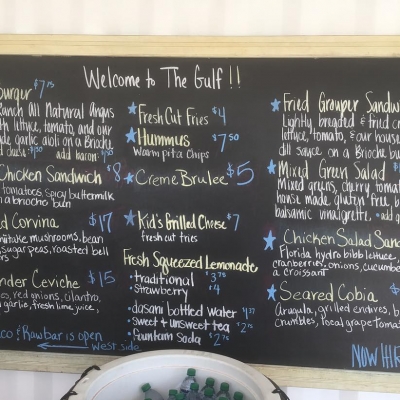 Welcome to The Gulf !!
burger $7.75
Ranch All Natural Angus
lettuce, tomato, and our
garlic aioli on a Brioche
add bacon
Chicken Sandwich $8
tomatoes, spicy buttermilk
a brioche bun
Corvina $17
mushrooms, bean
sugar peas, roasted bell
Ceviche $15
red onions, cilantro,
garlic, fresh lime juice,
& Rawbar is open
West side
Fresh Cut Fries $4
Hummus $7.50
Warm pita chips
Creme Brulee $5
Kid's Grilled Cheese $7
fresh cut fries
Fresh Squeezed Lemonade
• traditional $3.75
• Strawberry $4
• dasani bottled water
• sweet & unsweet tea $2.75
• fountain soda $2.75
Fried Grouper Sandw
Lightly breaded & fried
lettuce, tomato, & our house
dill sauce on a Brioche bun
Mixed Green Salad
Mixed greens, cherry tomato
house made gluten free
balsamic vinaigrette.
Chicken Salad Sand
Florida hydro bibb lettuce,
cranberries, onions, cucumbe
a croissant
Seared Cobia $
Arugula, grilled endives,
crumbles, local grape tomat
NOW HIR